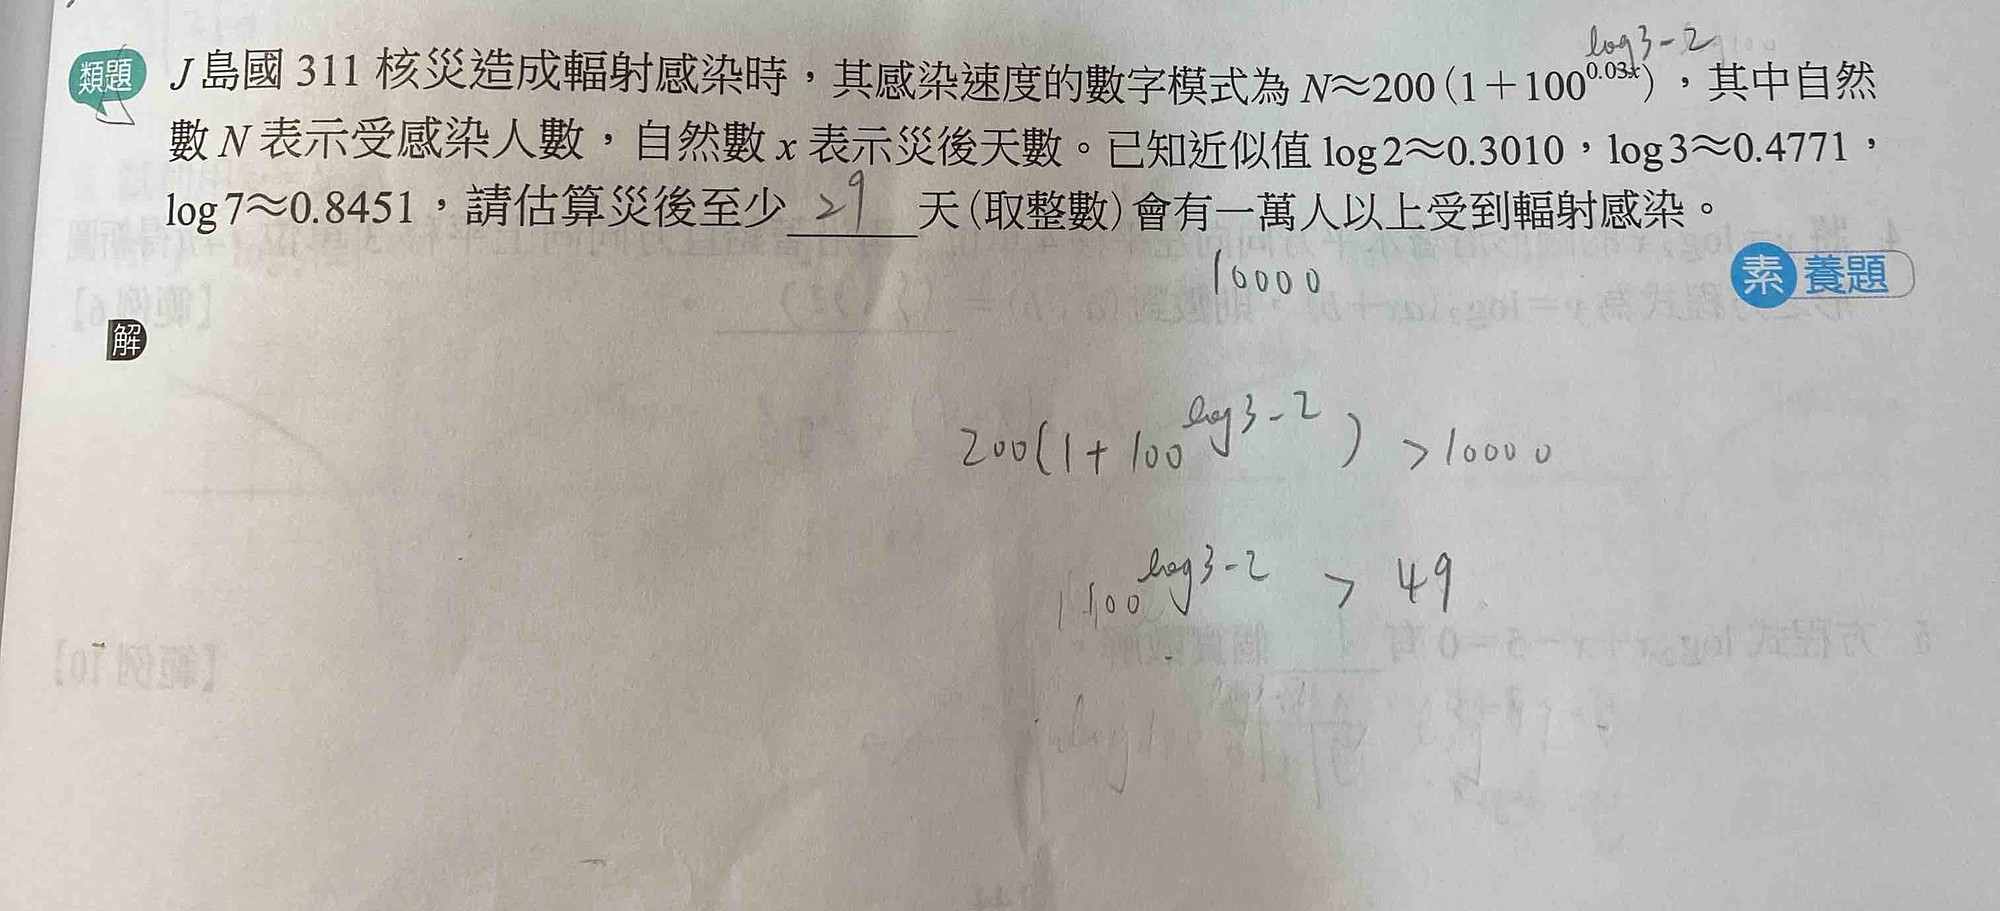 log3-2
類題 J島國 311 核災造成輻射感染時，其感染速度的數字模式為 N≈200(1+100^0.03x)，其中自然
數 N 表示受感染人數，自然數 x 表示災後天數。已知近似值 log2≈0.3010，log3≈0.4771，
log7≈0.8451，請估算災後至少 29 天(取整數)會有一萬人以上受到輻射感染。
10000
素養題
解
200(1+100^log3-2) >10000
100^log3-2 > 49